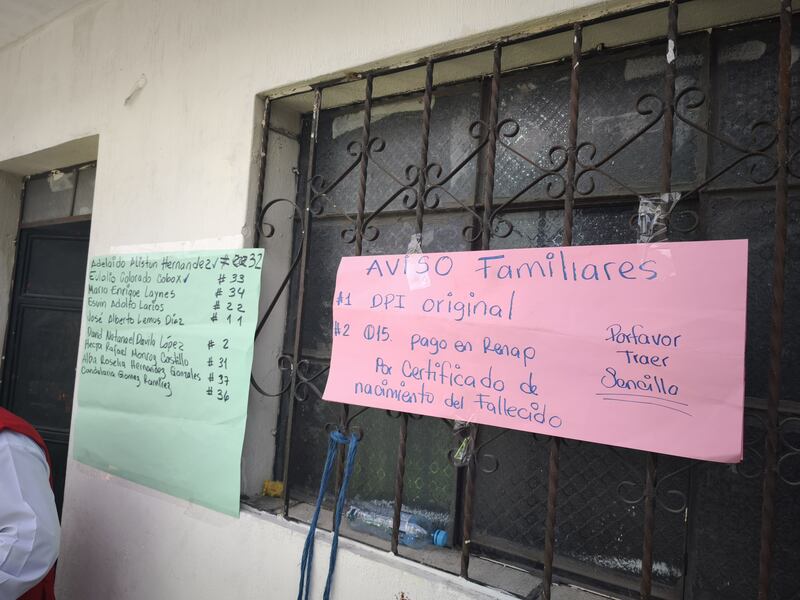 Adelaido Aliston Hernandez ✓ # 32
Eulalio Colorado Cobox ✓ # 33
Mario Enrique Laynes # 34
Esvin Adolfo Larios # 22
José Alberto Lemus Díaz # 11
David Natanael Davila López # 2
Rafael Monroy Castillo # 31
Alba Roselia Hernandez Gonzales # 37
Candelaria Gomez Ramírez # 36
AVISO Familiares
#1 DPI original
#2 Q15. pago en Renap
Por Certificado de
nacimiento del Fallecido
Porfavor
Traer
Sencillo